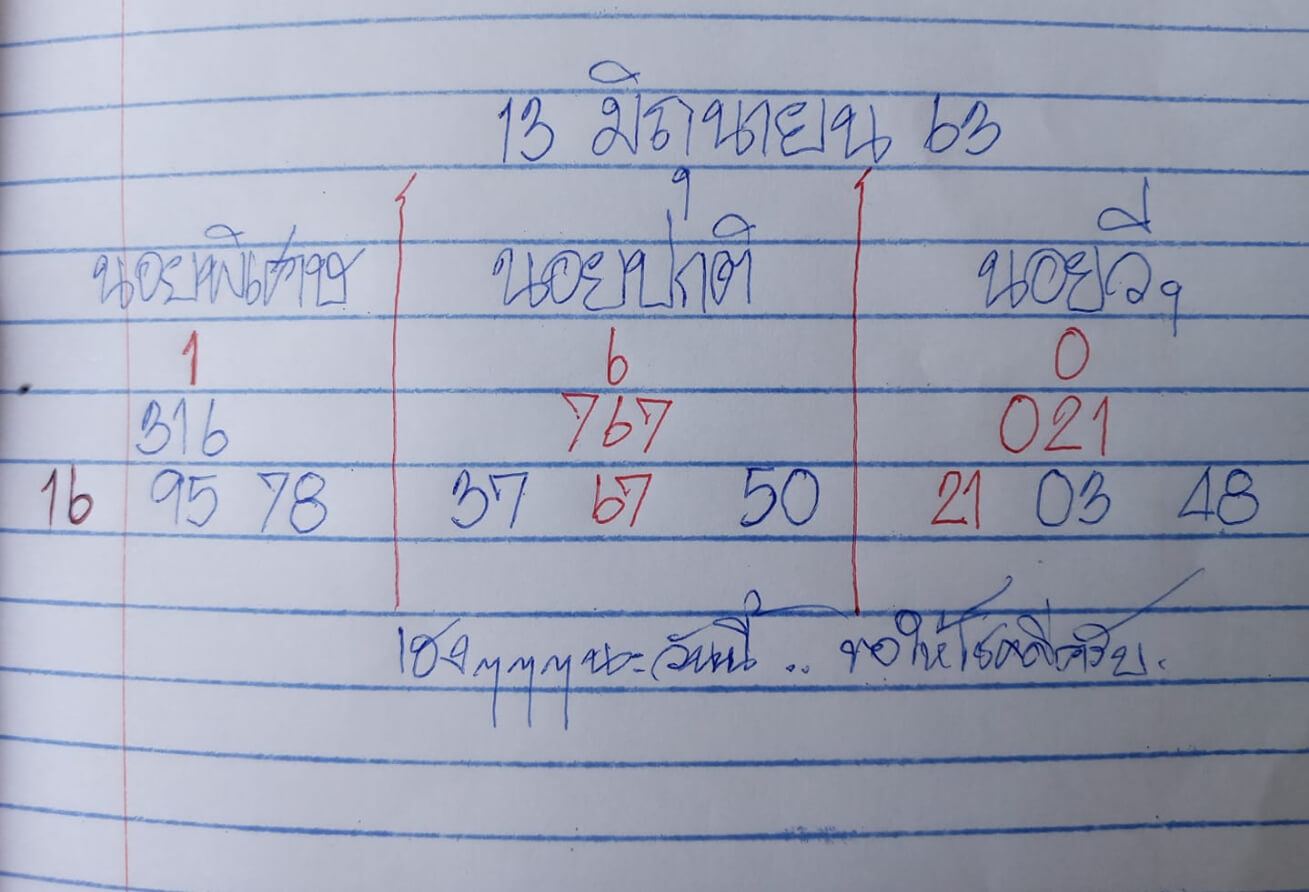 13 มิถุนายน 63
นอยพิเศษ นอยปกติ นอยวีๆ
1 6 0
316 767 021
16 95 78 37 67 50 21 03 48
เฮงๆๆๆๆนะวันนี้ .. ขอให้โชคดีครับ.